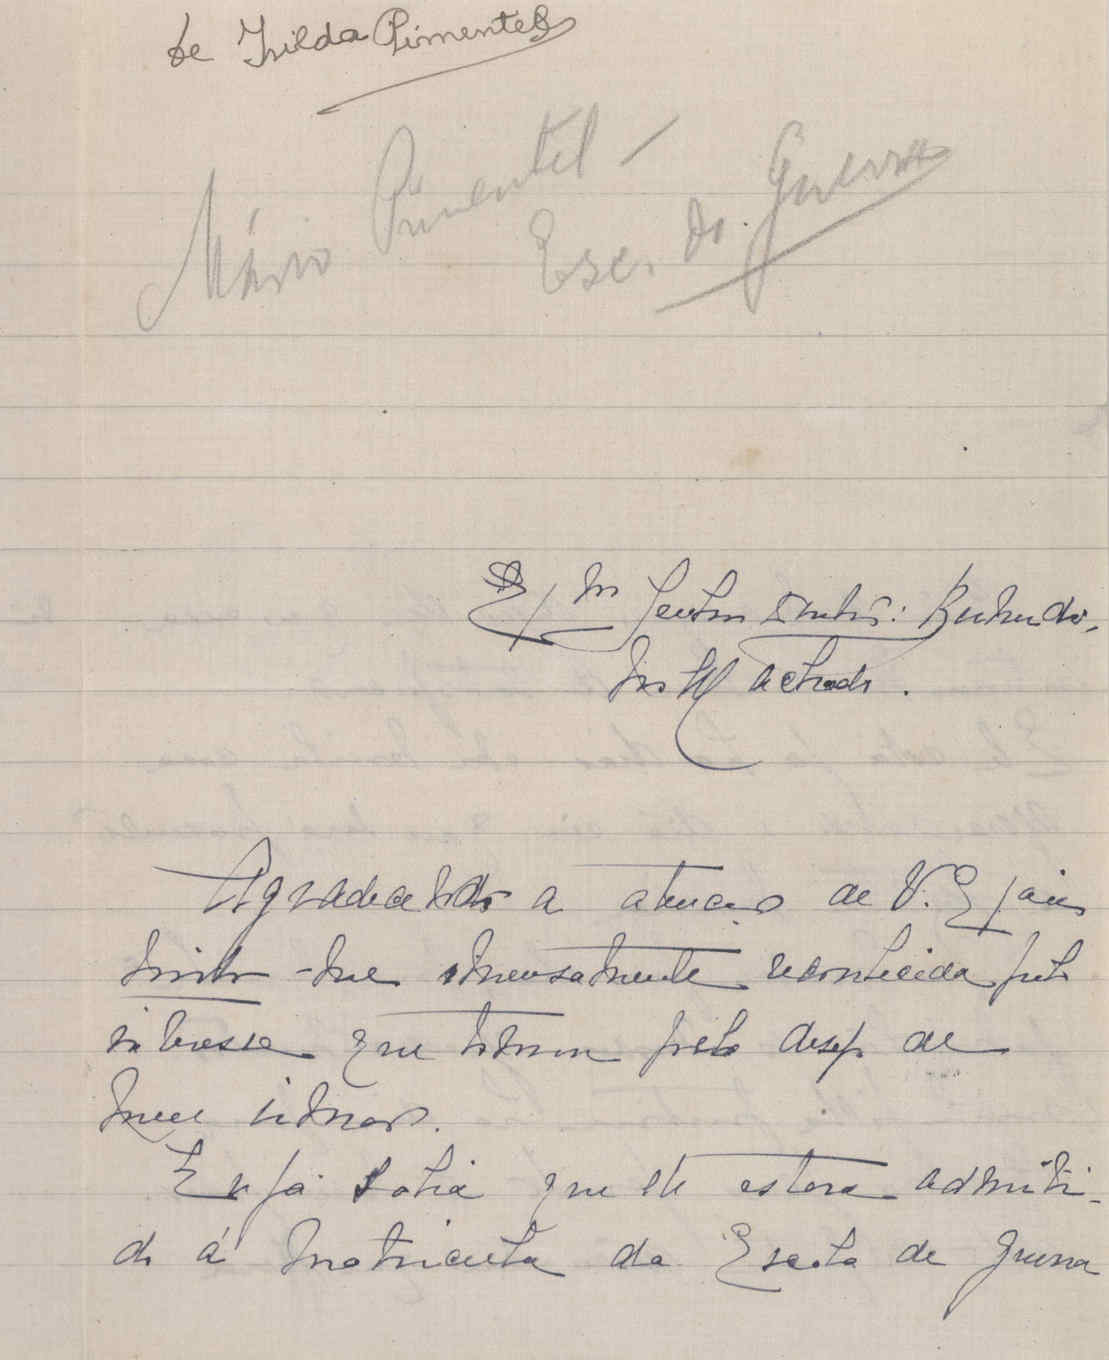 de Hilda Pimentel
Mário Pimentel —
Esc. de Guerra
Ex mo Senhor Doutor: Bernardino
Machado.
Agradecendo a atenção de V. Exª,
sinto-me imensamente reconhecida pelo
interesse que tomou pelo desp. de
meu irmão.
Eu já sabia que ele estava admiti-
do á matricula da Escola de Guerra